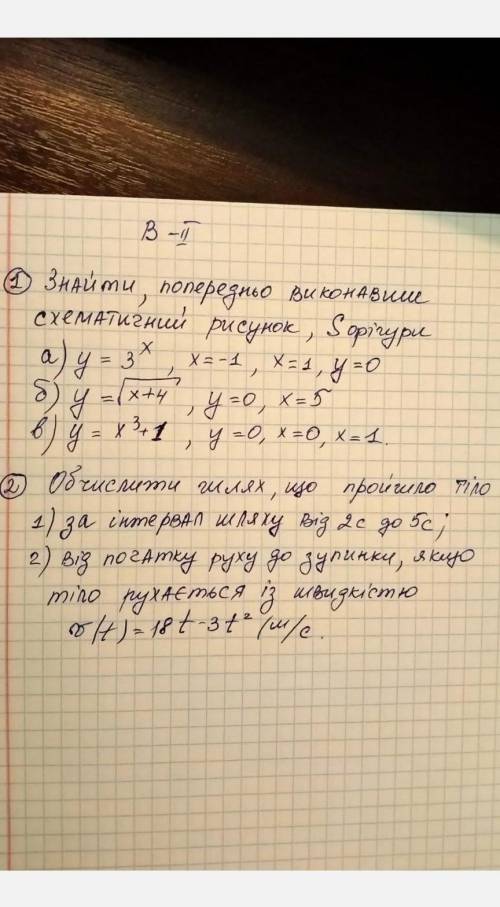 В - II
① Знайти, попередньо виконавши
схематичний рисунок, S фігури
а) y = 3^x, x = -1, x = 1, y = 0
б) y = √(x+4), y = 0, x = 5
в) y = x³ + 1, y = 0, x = 0, x = 1.
② Обчислити шлях, що пройшло тіло
1) за інтервал шляху від 2с до 5с;
2) від початку руху до зупинки, якщо
тіло рухається із швидкістю
v(t) = 18t - 3t² (м/с.